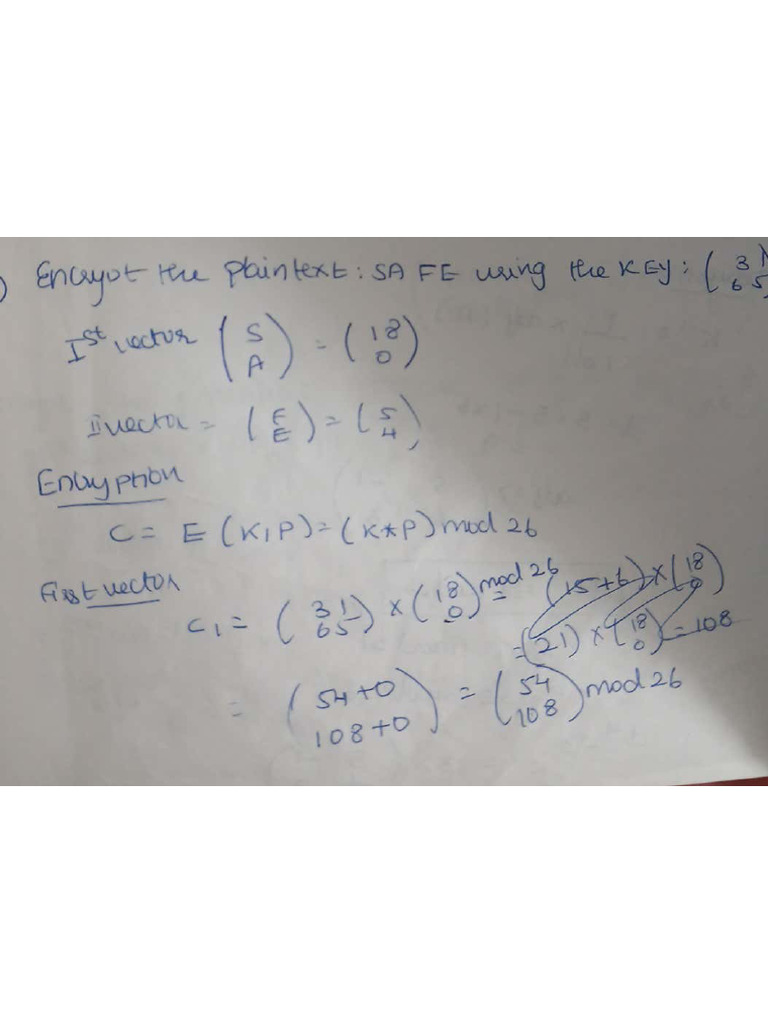 ) Encryot the plaintext: SAFE using the KEY: ( 3 1
6 5 )
Ist vector ( S
A ) = ( 18
0 )
II vector = ( F
E ) = ( 5
4 )
Encryption
C = E (K,P) = (K*P) mod 26
First vector
C1 = ( 3 1
6 5 ) × ( 18
0 ) mod 26 = (15+6) × ( 18
0 )
= (21) × ( 18
0 ) = 108
= ( 54+0
108+0 ) = ( 54
108 ) mod 26